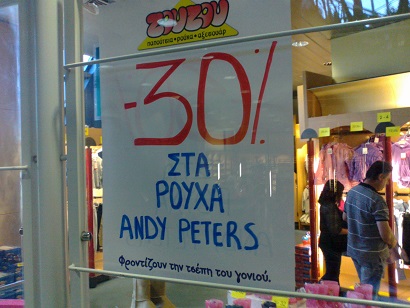 ΖΟΥΖΟΥ
παπούτσια•ρούχα•αξεσουάρ
-30%
ΣΤΑ
ΡΟΥΧΑ
ANDY PETERS
Φροντίζουν την τσέπη του γονιού.